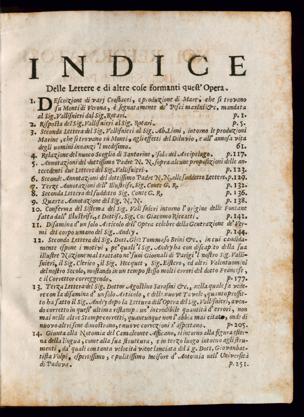 INDICE
Delle Lettere e di altre cose formanti quest' Opera.
1. DEscrizione di varj Crostacei, e produzioni di Mare, che si trovano
su Monti di Verona, e segnatamente de' Pesci marini &c. mandata
al Sig. Vallisnieri dal Sig. Rotari. p. 1.
2. Risposta del Sig. Vallisnieri al Sig. Rotari. p. 5.
3. Seconda Lettera del Sig. Vallisnieri al Sig. Ab. Lioni, intorno le produzioni
Marine, che si trovano su Monti, agli effetti del Diluvio, e all' annosa vita
degli uomini innanzi l' medesimo. 61.
4. Relazione del nuovo Scoglio di Santorino, Isola nell' Arcipelago. p. 117.
5. Annotazioni del dottissimo Padre N. N. sopra alcune proposizioni delle an-
tecedenti due Lettere del Sig. Vallisnieri. p. 123.
6. Seconde Annotazioni del dottissimo Padre N. N. alle suddette Lettere. p. 130.
7. Terze Annotazioni dell' Illustriss. Sig. Conte G. R. p. 132.
8. Seconda Lettera del suddetto Sig. Conte G. R. p. 136.
9. Quarte Annotazioni del Sig. N. N. p. 138.
10. Conferma del Sistema del Sig. Vallisnieri intorno l' origine delle Fontane
fatta dall' Illustriss. e Dottiss. Sig. Co: Giacomo Riccati. p. 141.
11. Disamina d' un solo Articolo dell' Opera celebre della Generazione de' Ver-
mi del corpo umano del Sig. Andry. p. 144.
12. Seconda Lettera del Sig. Dott. Gio: Tommaso Brini &c. in cui candida-
mente espone i motivi, pe' quali 'l Sig. Andry ha con disprezzo della sua
illustre Nazione mal trattato ne' suoi Giornali di Parigi 'l nostro Sig. Valli-
snieri, il Sig. Clerico, il Sig. Hecquet, Sig. Estero, ed altri Valentuomini
del nostro secolo, mostrando in un tempo stesso molti errori del dotto Francese
e il Correttore correggendo. p. 177.
13. Terza Lettera del Sig. Dottor Agostino Saraffini &c., nella quale si ve-
con la disamina d' un solo Articolo, e delle nuove Tavole, quanto profit-
to ha fatto il Sig. Andry dopo la Lettura dell' Opera del Sig. Vallisnieri, aven-
do corretto in quest' ultima ristampa un' incredibile quantità di errori, non
mai nelle altre Stampe corretti, quantunque non l' abbia mai citato, onde di
nuovo altresimo dimostrano, e nuove correzioni s' aspettano. p. 205.
14. Giunta alla Notomia del Camaleonte Affricano, intorno alla figura ester-
na della lingua, come alla sua struttura, e in terzo luogo intorno agli stru-
menti, da' quali con tanta velocità vien lanciata dal Sig. Dott. Giovamba-
tista Volpi, espertissimo, e pulitissimo Incisore d' Anatomia nell' Università
di Padova. p. 251.